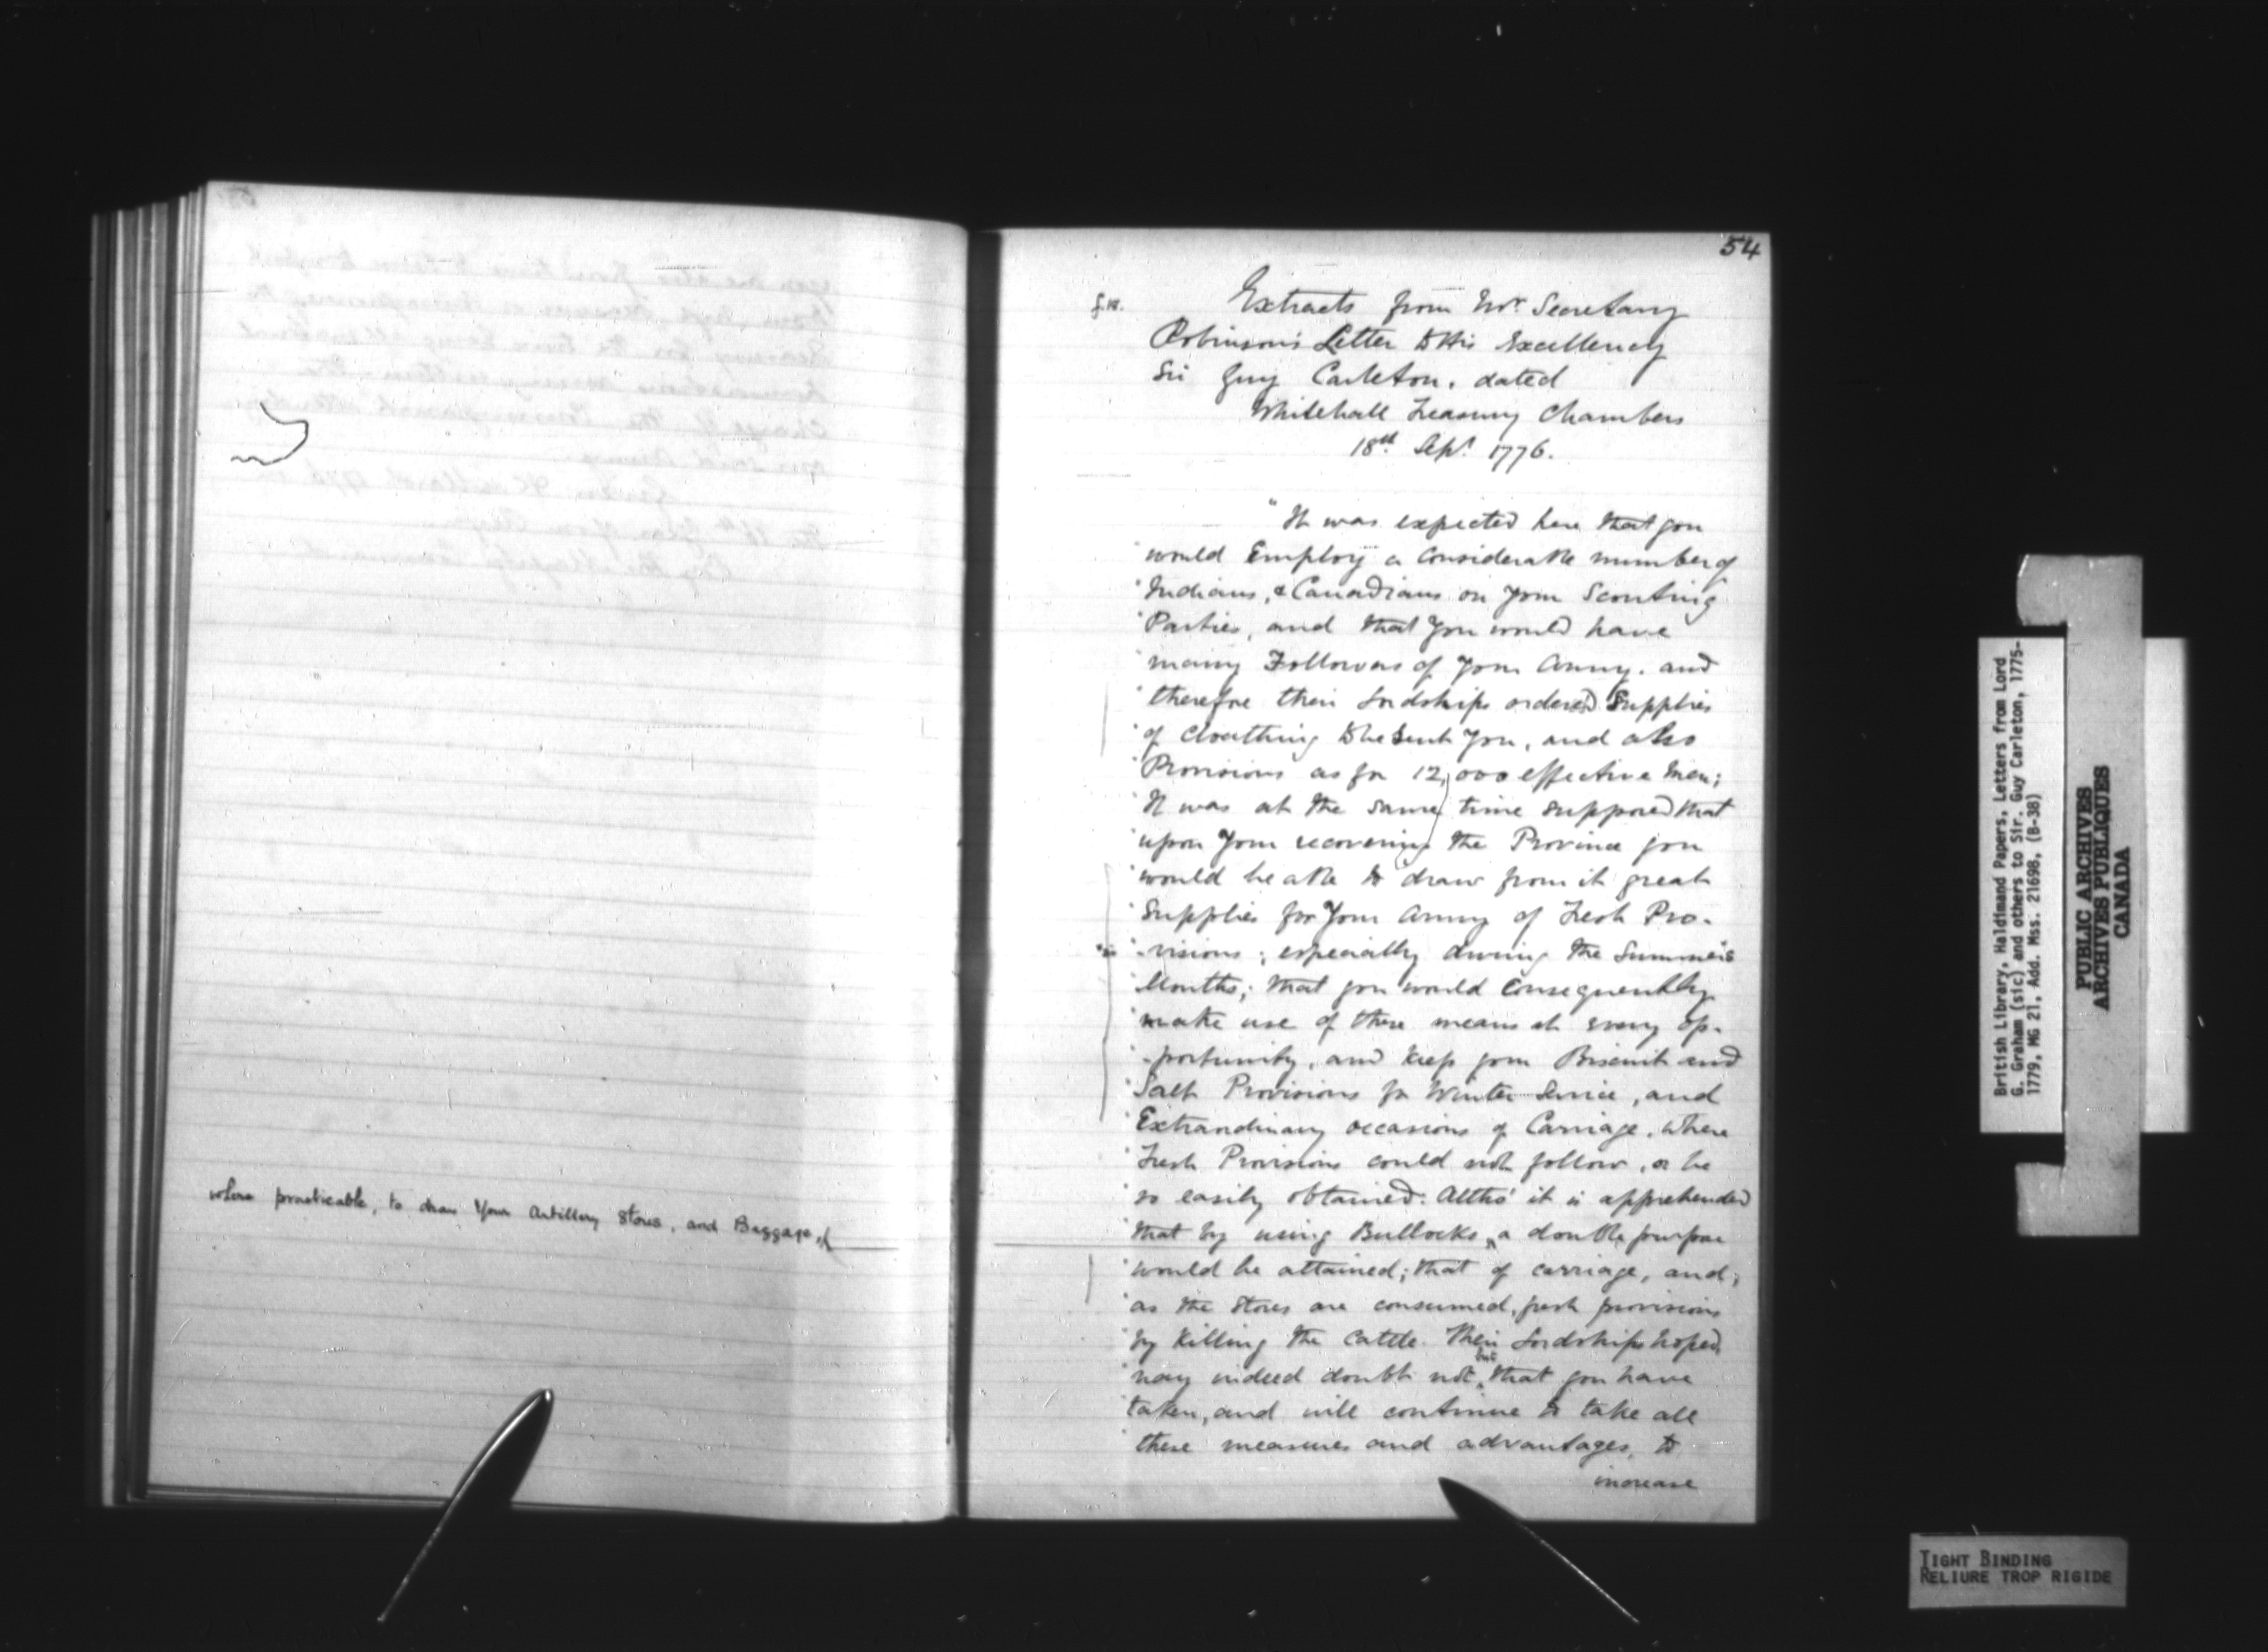 where practicable, to draw Your Artillery Stores, and Baggage,
54
Extracts from Mr. Secretary
Robinson's Letter to His Excellency
Sir Guy Carleton, dated
Whitehall Treasury Chambers
18th Sept. 1776.
"It was expected here that you
would Employ a Considerable number of
Indians, & Canadians on your Scouting
Parties, and that You would have
many Followers of Your Army. and
therefore their Lordships ordered Supplies
of Cloathing to be Sent You, and also
Provisions as for 12,000 effective Men;
It was at the same time supposed that
upon Your recovering the Province you
would be able to draw from it great
Supplies for Your Army of Fresh Pro-
-visions; especially during the Summer's
Months; that you would Consequently
make use of these means at every op-
-portunity, and keep your Biscuit and
Salt Provisions for Winter Service, and
Extraordinary occasions of Carriage, where
Fresh Provisions could not follow, or be
so easily obtained: Altho' it is apprehended
that by using Bullocks, a double purpose
would be attained; that of carriage, and,
as the Stores are consumed, fresh provisions
by Killing the Cattle. Their Lordships hoped,
nay indeed doubt not, but that you have
taken, and will continue to take all
these measures and advantages, to
increase
British Library, Haldimand Papers, Letters from Lord
G. Graham (sic) and others to Sir. Guy Carleton, 1775-
1779, MG 21, Add. Mss. 21698, (B-38)
PUBLIC ARCHIVES
ARCHIVES PUBLIQUES
CANADA
TIGHT BINDING
RELIURE TROP RIGIDE